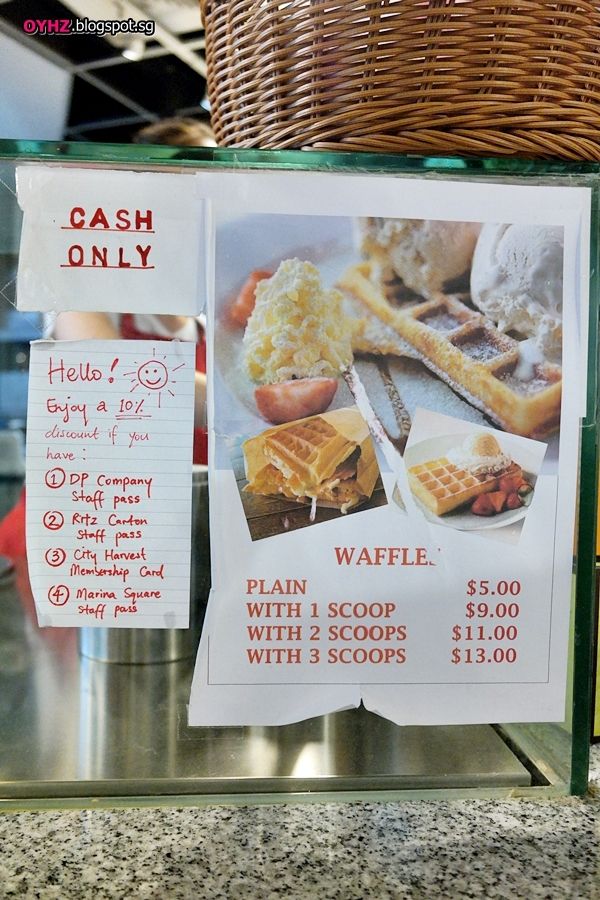 OYHZ.blogspot.sg
CASH
ONLY
Hello!
Enjoy a 10%
discount if you
have:
① DP Company
Staff pass
② Ritz Carton
Staff pass
③ City Harvest
Membership Card
④ Marina Square
staff pass
WAFFLES
PLAIN $5.00
WITH 1 SCOOP $9.00
WITH 2 SCOOPS $11.00
WITH 3 SCOOPS $13.00